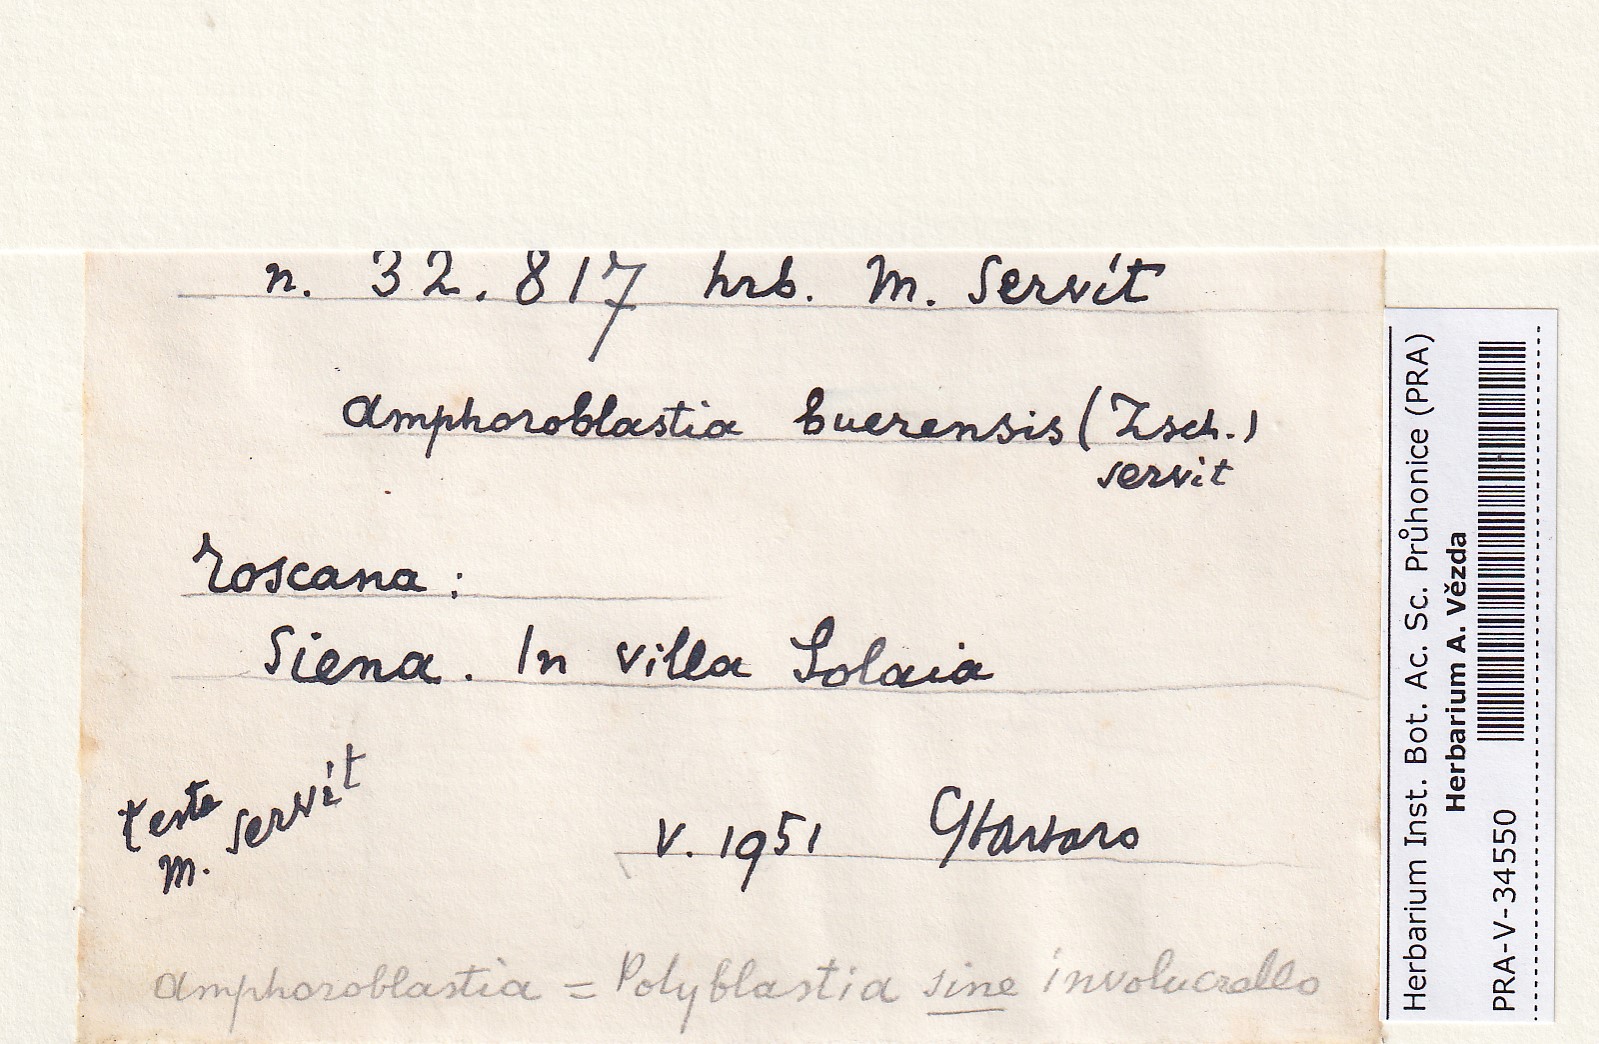 n. 32.817 hrb. M. Servít
Amphoroblastia buerensis (Zsch.)
Servít
Toscana:
Siena. In villa Solaia
teste
M. Servít
V. 1951
Amphoroblastia = Polyblastia sine involucrello
Herbarium Inst. Bot. Ac. Sc. Průhonice (PRA)
Herbarium A. Vězda
PRA-V-34550